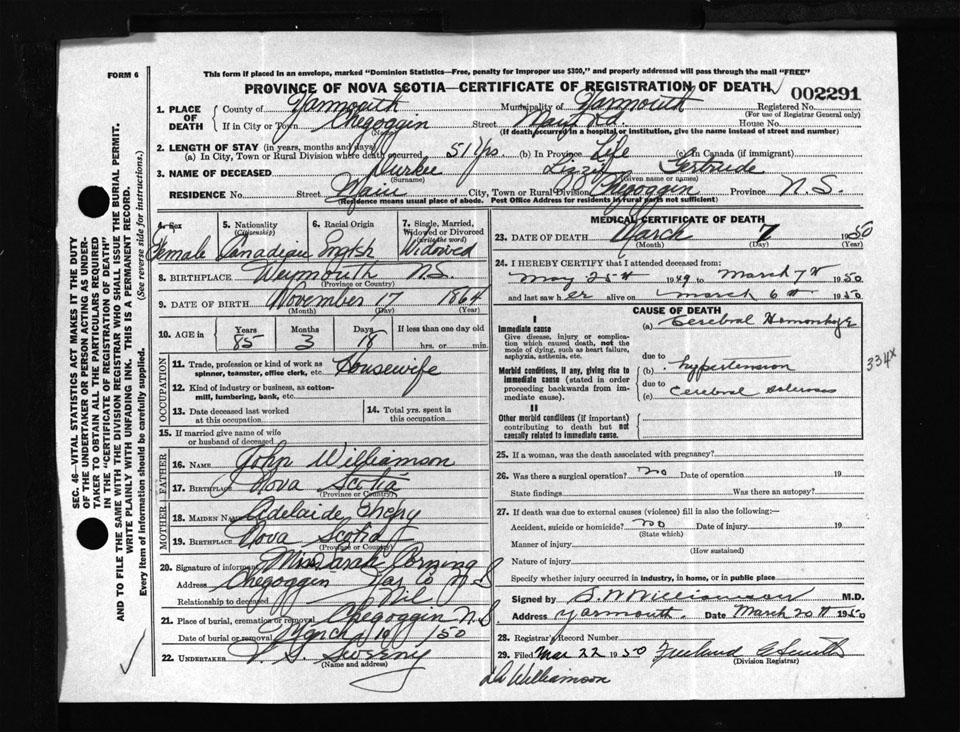 FORM 6
This form if placed in an envelope, marked "Dominion Statistics—Free, penalty for improper use $300," and properly addressed will pass through the mail "FREE"
PROVINCE OF NOVA SCOTIA—CERTIFICATE OF REGISTRATION OF DEATH
002291
1. PLACE OF DEATH { County of Yarmouth Municipality of Yarmouth Registered No.
(For use of Registrar General only)
If in City or Town Chegoggin Street Main Rd. House No.
(Name) (If death occurred in a hospital or institution, give the name instead of street and number)
2. LENGTH OF STAY (in years, months and days)
(a) In City, Town or Rural Division where death occurred 51 Yrs (b) In Province Life (c) In Canada (if immigrant)
3. NAME OF DECEASED Durkee Lizzie Gertrude
(Surname) (Given name or names)
RESIDENCE No. Street Main City, Town or Rural Division Chegoggin Province N.S.
(Residence means usual place of abode. Post Office Address for residents in rural parts not sufficient)
4. Sex
Female
5. Nationality (Citizenship)
Canadian
6. Racial Origin
7. Single, Married, Widowed or Divorced (write the word)
Widowed
8. BIRTHPLACE Weymouth N.S.
(Province or Country)
9. DATE OF BIRTH November 17 1864
(Month) (Day) (Year)
10. AGE in { Years Months Days If less than one day old
85 3 18 hrs. or min.
OCCUPATION
11. Trade, profession or kind of work as spinner, teamster, office clerk, etc. Housewife
12. Kind of industry or business, as cotton-mill, lumbering, bank, etc.
13. Date deceased last worked at this occupation
14. Total yrs. spent in this occupation
15. If married give name of wife or husband of deceased
FATHER
16. NAME John Williamson
17. BIRTHPLACE Nova Scotia
(Province or Country)
MOTHER
18. MAIDEN NAME Adelaide
19. BIRTHPLACE Nova Scotia
(Province or Country)
20. Signature of informant Sarah Corning
Address Chegoggin Yar Co N.S
Relationship to deceased Nil
21. Place of burial, cremation or removal Chegoggin N.S
Date of burial or removal March 10 /50
22. UNDERTAKER V. S. Sweeny
(Name and address)
MEDICAL CERTIFICATE OF DEATH
23. DATE OF DEATH March 7 1950
(Month) (Day) (Year)
24. I HEREBY CERTIFY that I attended deceased from:
May 25th 1949 to March 7th 1950
and last saw her alive on March 6th 1950
CAUSE OF DEATH
I
Immediate cause
Give disease, injury or complication which caused death, not the mode of dying, such as heart failure, asphyxia, asthenia, etc.
(a) Cerebral Hemorrhage
due to
Morbid conditions, if any, giving rise to immediate cause (stated in order proceeding backwards from immediate cause).
(b) hypertension
due to
(c) Cerebral
334x
II
Other morbid conditions (if important) contributing to death but not causally related to immediate cause.
25. If a woman, was the death associated with pregnancy?
26. Was there a surgical operation? no Date of operation 19
State findings Was there an autopsy?
27. If death was due to external causes (violence) fill in also the following:—
Accident, suicide or homicide? no Date of injury 19
(State which)
Manner of injury
(How sustained)
Nature of injury
Specify whether injury occurred in industry, in home, or in public place
Signed by S.W. Williamson M.D.
Address Yarmouth. Date March 20th 1950
28. Registrar's Record Number
29. Filed Mar 22 1950
(Division Registrar)
Dr Williamson
SEC. 46—VITAL STATISTICS ACT MAKES IT THE DUTY
OF THE UNDERTAKER OR PERSON ACTING AS UNDER-
TAKER TO OBTAIN ALL THE PARTICULARS REQUIRED
IN THE "CERTIFICATE OF REGISTRATION OF DEATH"
AND TO FILE THE SAME WITH THE DIVISION REGISTRAR WHO SHALL ISSUE THE BURIAL PERMIT.
WRITE PLAINLY WITH UNFADING INK. THIS IS A PERMANENT RECORD.
Every item of information should be carefully supplied. (See reverse side for instructions.)